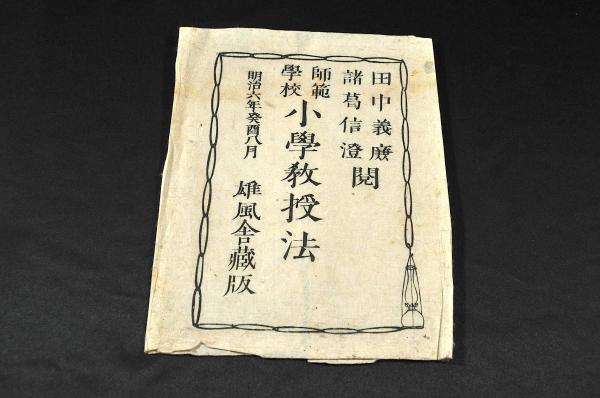 田中義廉
諸葛信澄閲
師範學校小學教授法
明治六年癸酉八月
雄風舎藏版